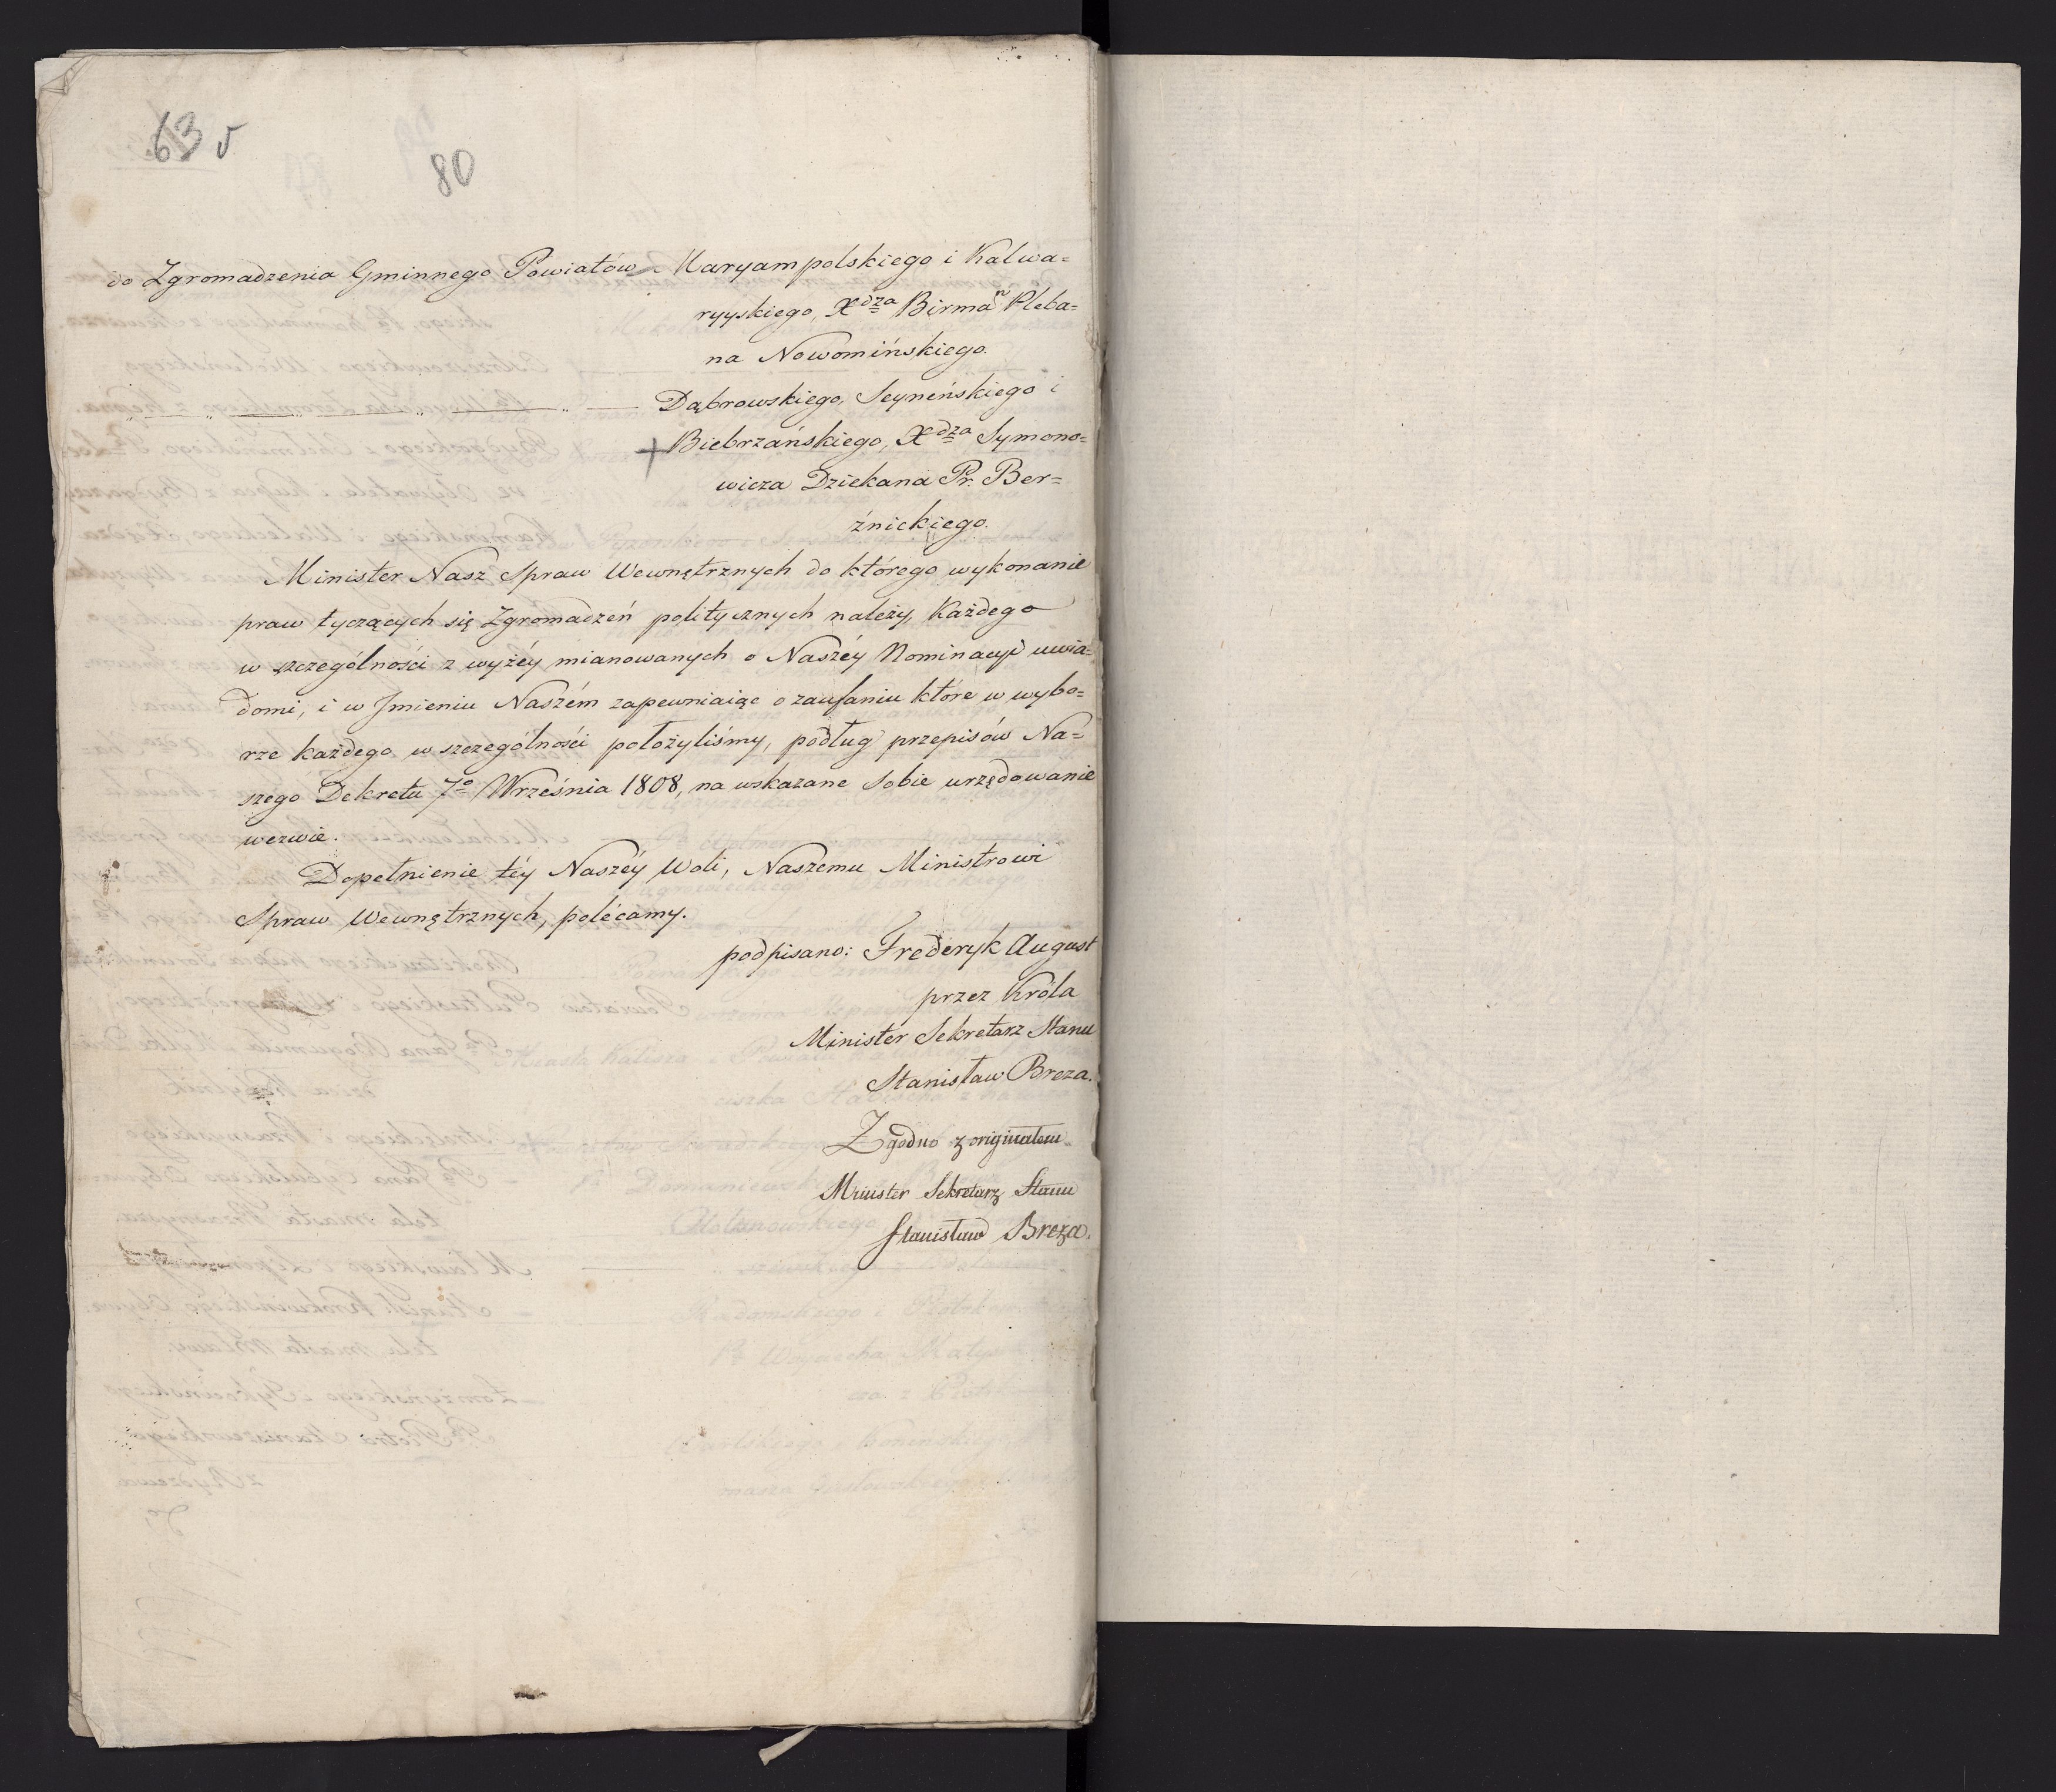 63 v
80
do Zgromadzenia Gminnego Powiatów Maryampolskiego i Kalwa=
ryyskiego, Xdza Birman Pleba=
na Nowomińskiego.
„ — „ — „ — „ — Dąbrowskiego, Seyneńskiego i
+ Biebrzańskiego, Xdza Symono=
wicza Dziekana Pr. Ber=
źnickiego.
Minister Nasz Spraw Wewnętrznych do którego wykonanie
praw tyczących się Zgromadzeń politycznych należy, Każdego
w szczególności z wyżéy mianowanych o Naszéy Nominacyi uwia=
domi, i w Jmieniu Naszém zapewniaiąc o zaufaniu które w wybo=
rze każdego w szczególności położyliśmy, podług przepisów Na=
szego Dekretu 7o Września 1808, na wskazane sobie urzędowanie
wezwie.
Dopełnienie téy Naszéy Woli, Naszemu Ministrowi
Spraw Wewnętrznych, polécamy.
podpisano: Frederyk August
przez Króla
Minister Sekretarz Stanu
Stanisław Breza.
Zgodno z originałem
Minister Sekretarz Stanu
Stanisław Breza.